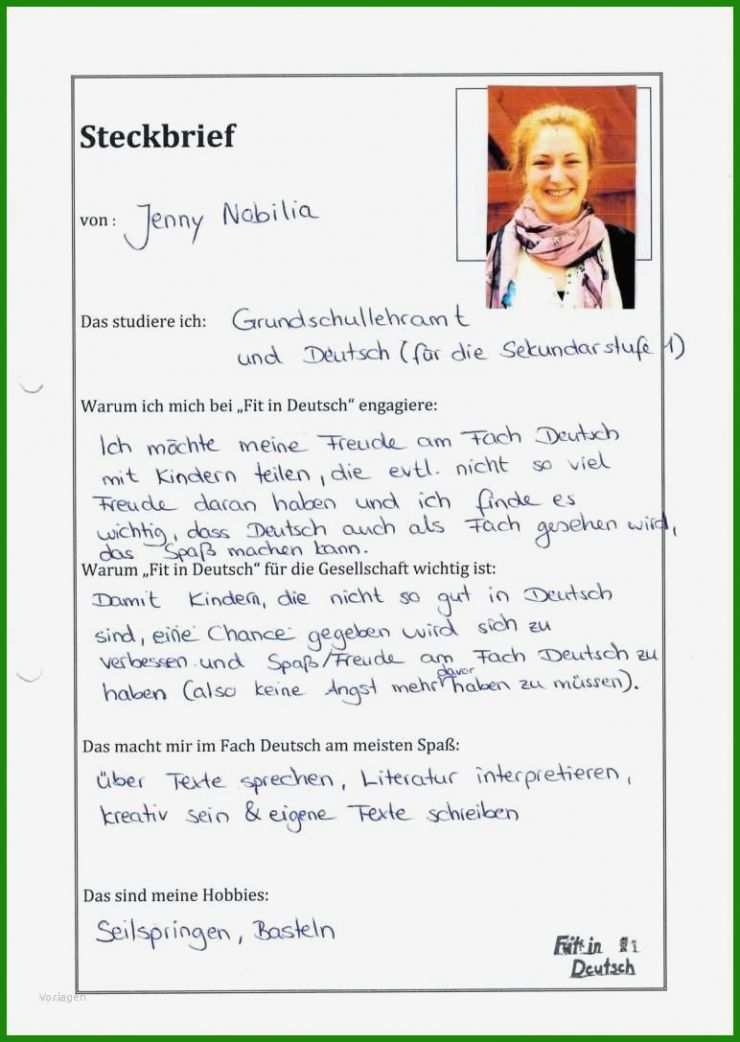 Steckbrief
von: Jenny Nobilia
Das studiere ich: Grundschullehramt
und Deutsch (für die Sekundarstufe 1)
Warum ich mich bei „Fit in Deutsch“ engagiere:
Ich möchte meine Freude am Fach Deutsch
mit Kindern teilen, die evtl. nicht so viel
Freude daran haben und ich finde es
wichtig, dass Deutsch auch als Fach gesehen wird,
das Spaß machen kann.
Warum „Fit in Deutsch“ für die Gesellschaft wichtig ist:
Damit Kindern, die nicht so gut in Deutsch
sind, eine Chance gegeben wird sich zu
verbessen und Spaß/Freude am Fach Deutsch zu
haben (also keine Angst mehr davor haben zu müssen).
Das macht mir im Fach Deutsch am meisten Spaß:
über Texte sprechen, Literatur interpretieren,
kreativ sein & eigene Texte schreiben
Das sind meine Hobbies:
Seilspringen, Basteln
Fit in
Deutsch
Vorlagen